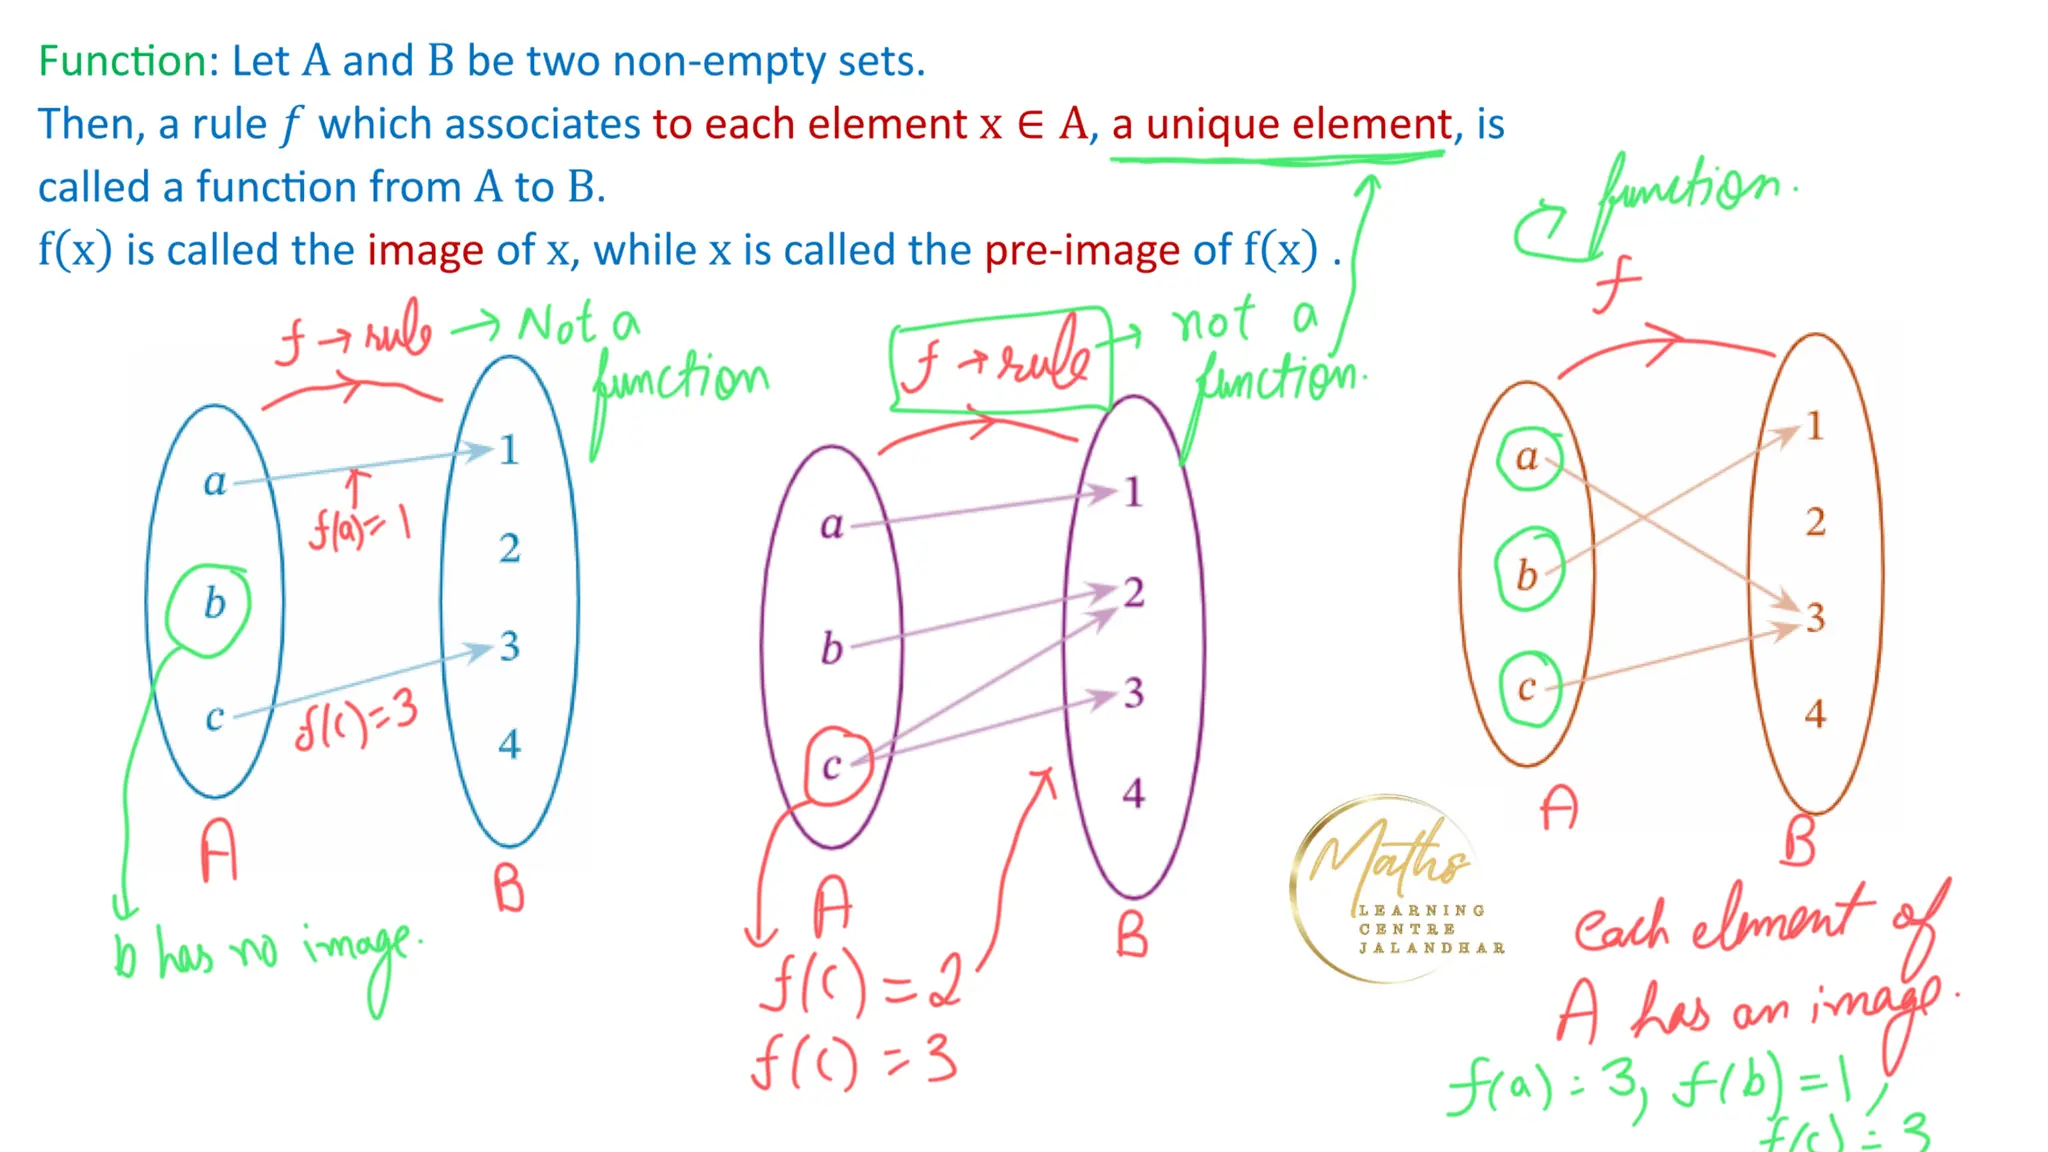 Function: Let A and B be two non-empty sets.
Then, a rule f which associates to each element x ∈ A, a unique element, is
called a function from A to B.
f(x) is called the image of x, while x is called the pre-image of f(x) .
f → rule → Not a
function
a
b
c
1
2
3
4
f(a) = 1
f(c) = 3
A
B
b has no image.
f → rule → not a
function.
a
b
c
1
2
3
4
A
B
f(c) = 2
f(c) = 3
function.
f
a
b
c
1
2
3
4
A
B
Maths
LEARNING
CENTRE
JALANDHAR
each element of
A has an image.
f(a) = 3, f(b) = 1,
f(c) = 3